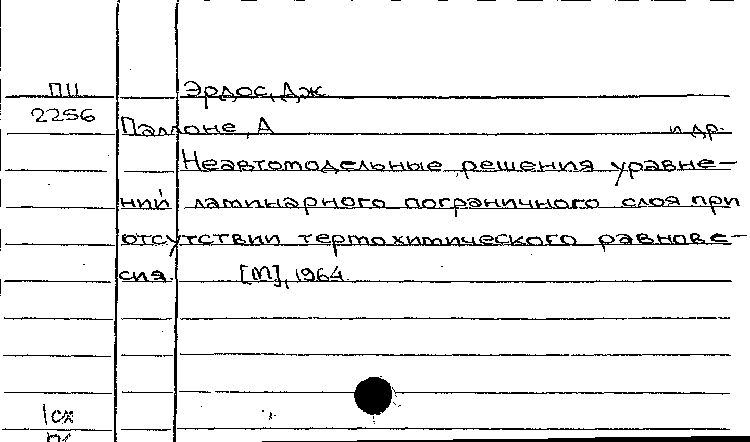 ПП Эрдос, Дж
2256
Паллоне, А и др.
Неавтомодельные решения уравне-
ний ламинарного пограничного слоя при
отсутствии термохимического равнове-
сия. [М], 1964.